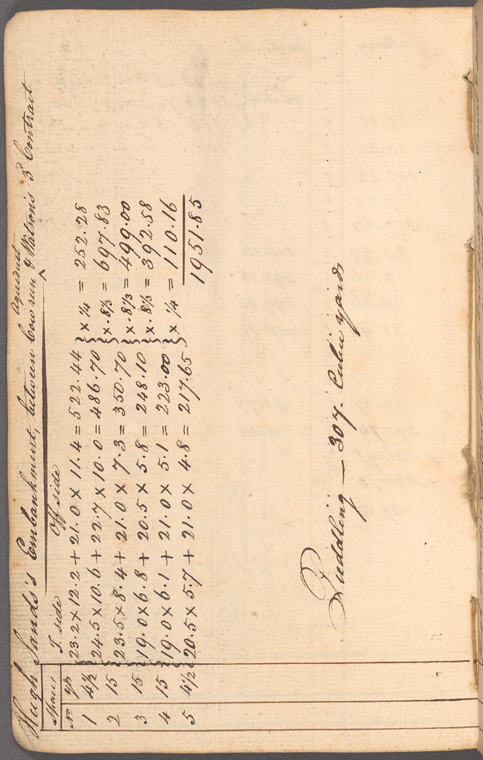 Hugh Sands's Embankment, between Cow run Aqueduct & Watson's 3d Contract
Spaces I side Off side
No yds 23.2 × 12.2 + 21.0 × 11.4 = 522.44
1 4½ } } × ¼ = 252.28
24.5 × 10.6 + 22.7 × 10.0 = 486.70
2 15 } } × .8⅓ = 697.83
23.5 × 8.4 + 21.0 × 7.3 = 350.70
3 15 } } × .8⅓ = 499.00
19.0 × 6.8 + 20.5 × 5.8 = 248.10
4 15 } } × .8⅓ = 392.58
19.0 × 6.1 + 21.0 × 5.1 = 223.00
5 4½ } } × ¼ = 110.16
20.5 × 5.7 + 21.0 × 4.8 = 217.65
1951.85
Puddling — 307. Cubic yards